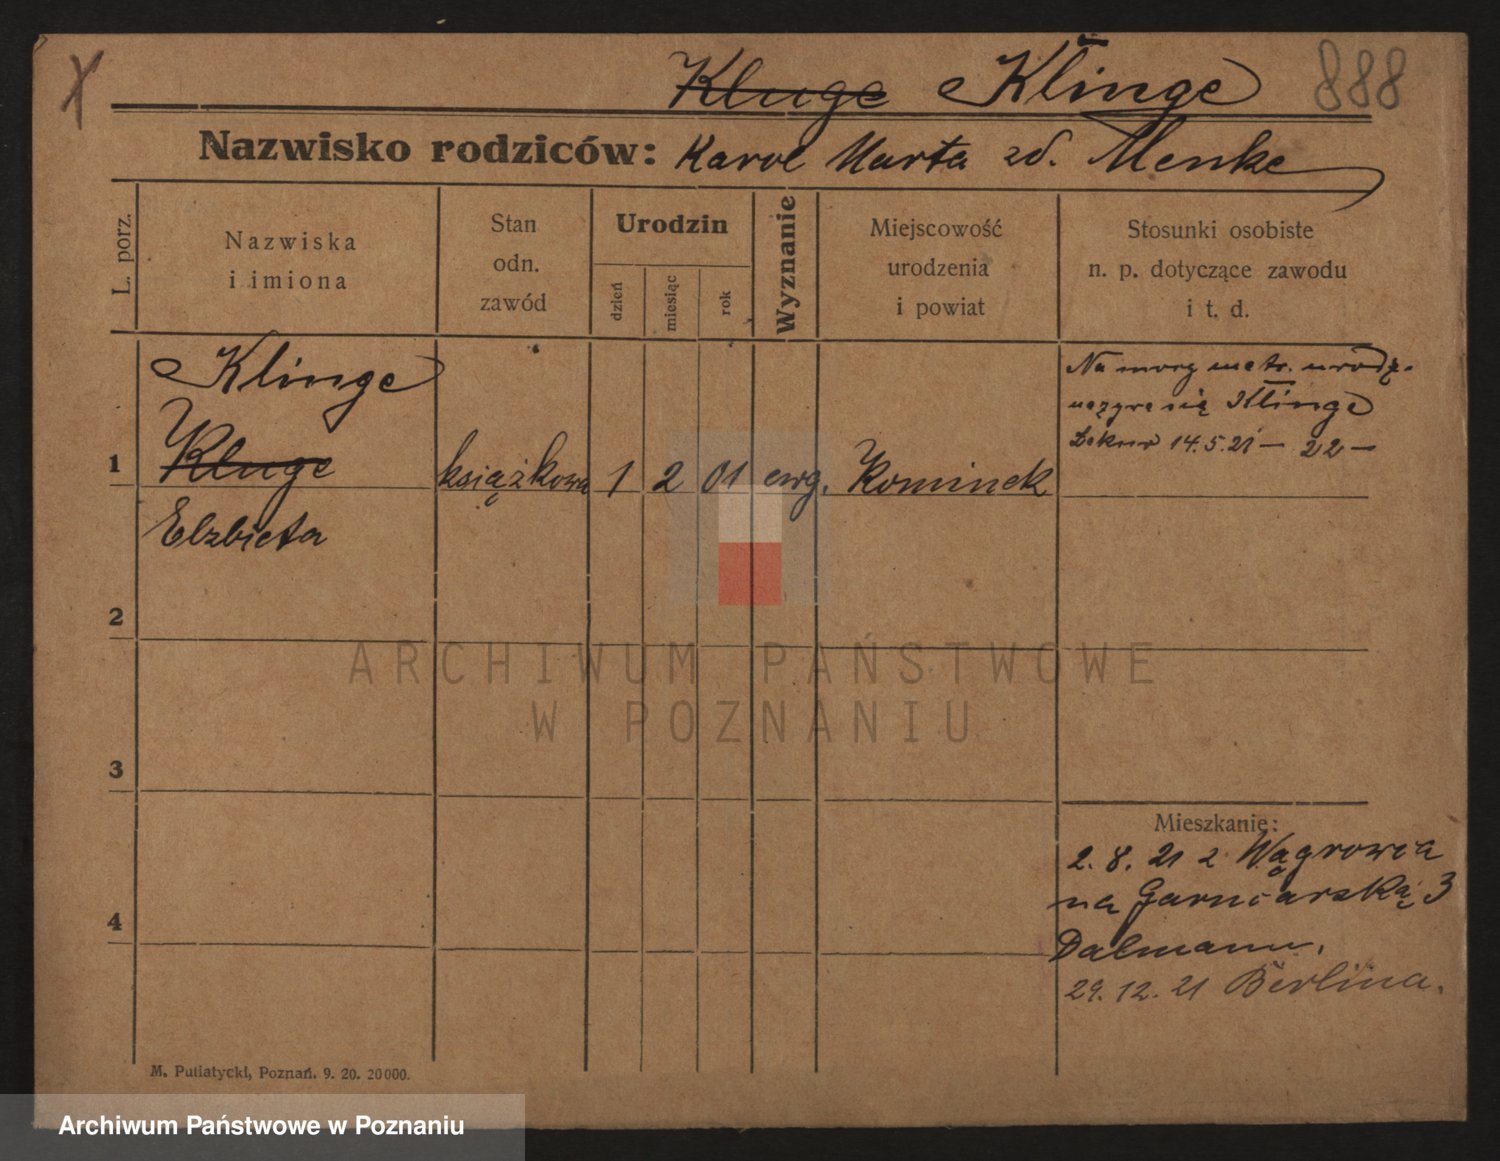 Kluge Klinge 888
Nazwisko rodziców: Karol Marta zd. Menke
L. porz.
Nazwiska
i imiona
Stan
odn.
zawód
Urodzin
dzień
miesiąc
rok
Wyznanie
Miejscowość
urodzenia
i powiat
Stosunki osobiste
n. p. dotyczące zawodu
i t. d.
Klinge
1 Kluge książkowa 1 2 01 ewg. Kominek
Elzbieta
Na mocy metr. urodz.
nazywa się Klinge
Dekret 14.5.21 — 22 —
2
3
4
Mieszkanie:
2. 8. 21 z Wągrowca
na Garncarską 3
Dalmann.
29. 12. 21 Berlina.
M. Putiatycki, Poznań. 9. 20. 20000.
ARCHIWUM PAŃSTWOWE
W POZNANIU
Archiwum Państwowe w Poznaniu